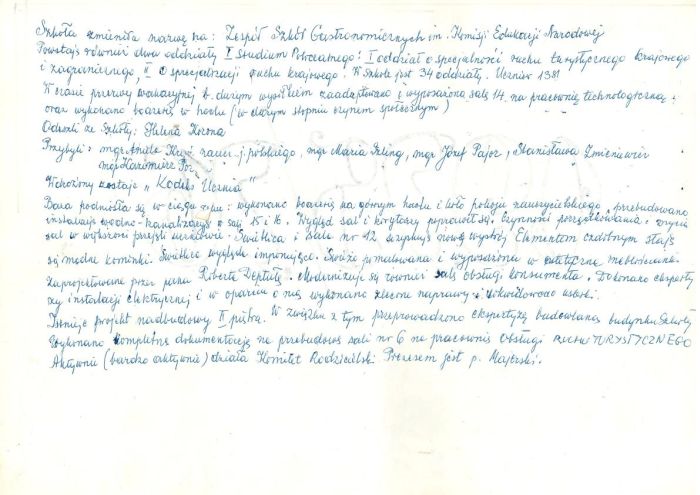 Szkoła zmieniła nazwę na: Zespół Szkół Gastronomicznych im. Komisji Edukacji Narodowej
Powstają również dwa oddziały I studium Pomaturalnego: I oddział o specjalności ruchu turystycznego krajowego
i zagranicznego, II o specjalizacji ruchu krajowego. W szkole jest 34 oddziały. Uczniów 1381
W czasie przerwy wakacyjnej b. dużym wysiłkiem zaadaptowano i wyposażono salę 14 na pracownię technologiczną
oraz wykonano boazerię w hallu (w dużym stopniu czynem społecznym)
Odeszli ze Szkoły: Helena Korona
Przybyli: mgr Aniela naucz. j. polskiego, mgr Maria mgr Józef Pajor, Stanisława
mgr Kazimierz
Wdrożony zostaje "Kodeks Ucznia
Baza podniosła się w ciągu roku: wykonano boazerię na górnym hallu i koło pokoju nauczycielskiego, przebudowano
instalację wodno-kanalizacyjną w sali 15 i 16. Wygląd sal i korytarzy poprawił się. Czynności porządkowania
sal w większości przejęli uczniowie. Świetlica i sala nr 12 otrzymują nowy wystrój. Elementem ozdobnym stają
się modne kominki. Świetlica wygląda imponująco. Świeżo pomalowana i wyposażona w estetyczne meblościanki
zaprojektowane przez pana Roberta Deptułę. Modernizuje się również salę obsługi konsumenta. Dokonano eksperty
zy instalacji elektrycznej i w oparciu o nią wykonano zlecone naprawy i zlikwidowano usterki.
Istnieje projekt nadbudowy II piętra. W związku z tym przeprowadzono ekspertyzę budowlaną budynku Szkoły
Wykonano kompletną dokumentację na przebudowę sali nr 6 na pracownię Obsługi RUCHU TURYSTYCZNEGO
Aktywnie (bardzo aktywnie) działa Komitet Rodzicielski Prezesem jest p. Majerski.